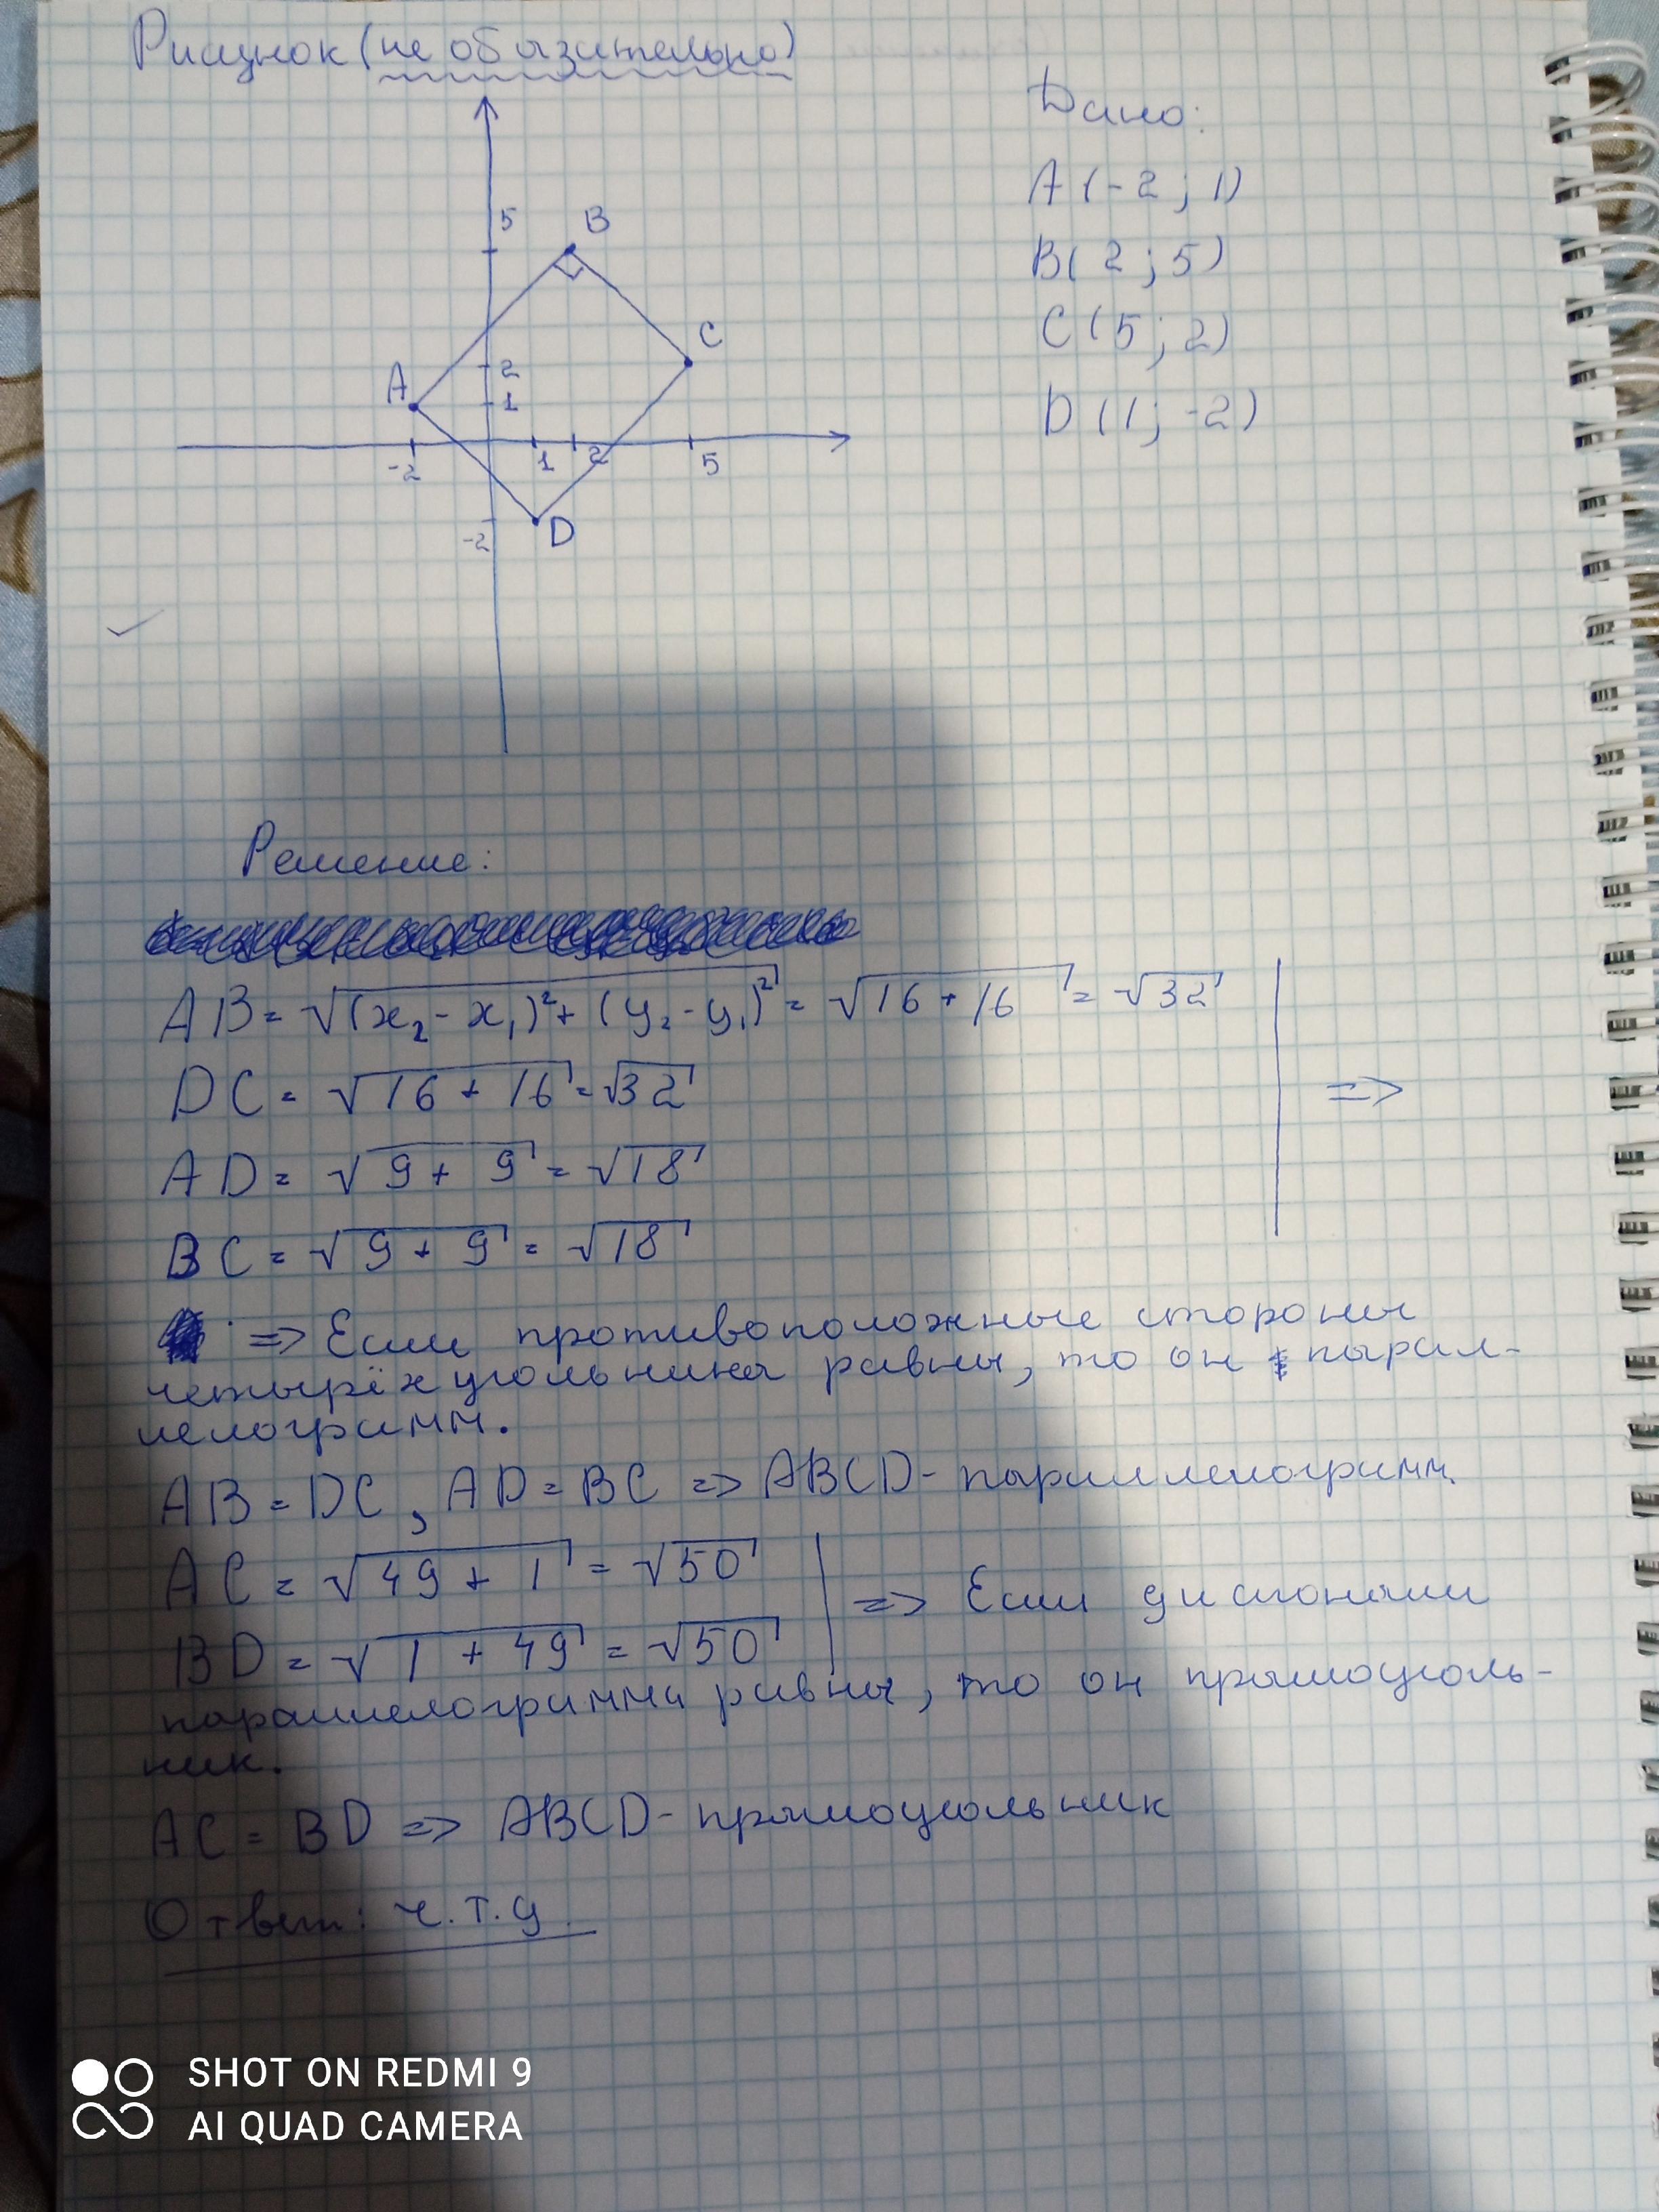 Рисунок (не обызательно)
Дано:
A (-2 ; 1)
B( 2 ; 5)
C (5 ; 2)
D (1 ; -2)
5
B
C
2
A
1
-2
1
2
5
-2
D
Решение:
AB = √(x₂ - x₁)² + (y₂ - y₁)² = √16 + 16 = √32
DC = √16 + 16 = √32
=>
AD = √9 + 9 = √18
BC = √9 + 9 = √18
=> Если противоположные стороны
четырёхугольника равны, то он парал-
лелограмм.
AB = DC , AD = BC => ABCD - параллелограмм.
AC = √49 + 1 = √50
=> Если диагонали
BD = √1 + 49 = √50
параллелограмма равны, то он прямоуголь-
ник.
AC = BD => ABCD - прямоугольник
Ответ: ч.т.д.
SHOT ON REDMI 9
AI QUAD CAMERA